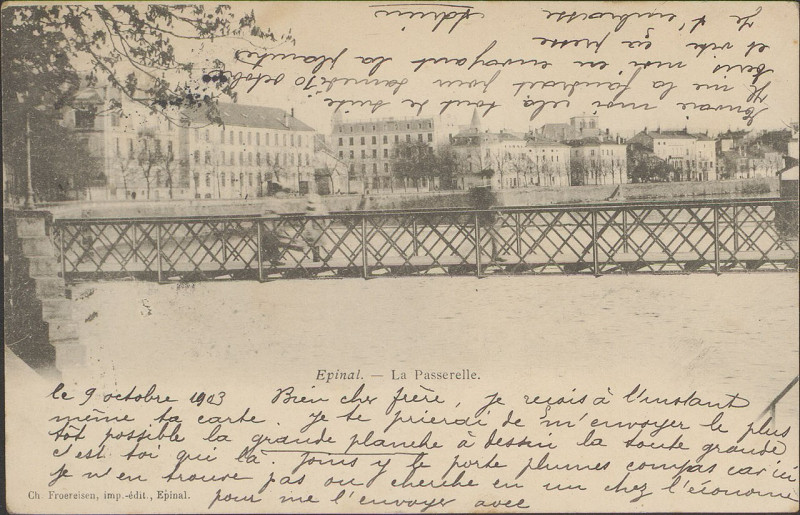 Epinal. — La Passerelle.
le 9 octobre 1903 Bien cher frère, je reçois à l'instant
même ta carte. Je te prierai de m'envoyer le plus
tôt possible la grande planche à dessin la toute grande
c'est toi qui l'a. Joins y le porte plumes compas car ici
je n'en trouve pas ou cherche en un chez l'économe
pour me l'envoyer avec
Ch. Froereisen, imp.-édit., Epinal.
Envoie moi cela tout de suite
Il me la faudrait pour samedi 10 octob
Ecris moi en envoyant la planche
et vite ça presse
Je t'embrasse
Adrien